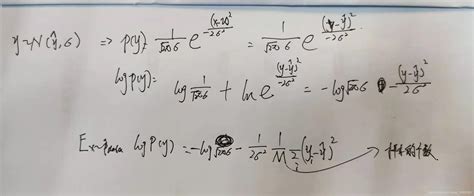 y=N(ŷ,6) => p(y)= 1/√2π6 e^((x-u)²/-26²) = 1/√2π6 e^((y-ŷ)²/-26²)
log p(y) = log 1/√2π6 + ln e^((y-ŷ)²/-26²) = -log√2π6 - (y-ŷ)²/26²
log P(y) = -log√2π6 - 1/26² 1/M Σᵢ(yᵢ-ŷ)²